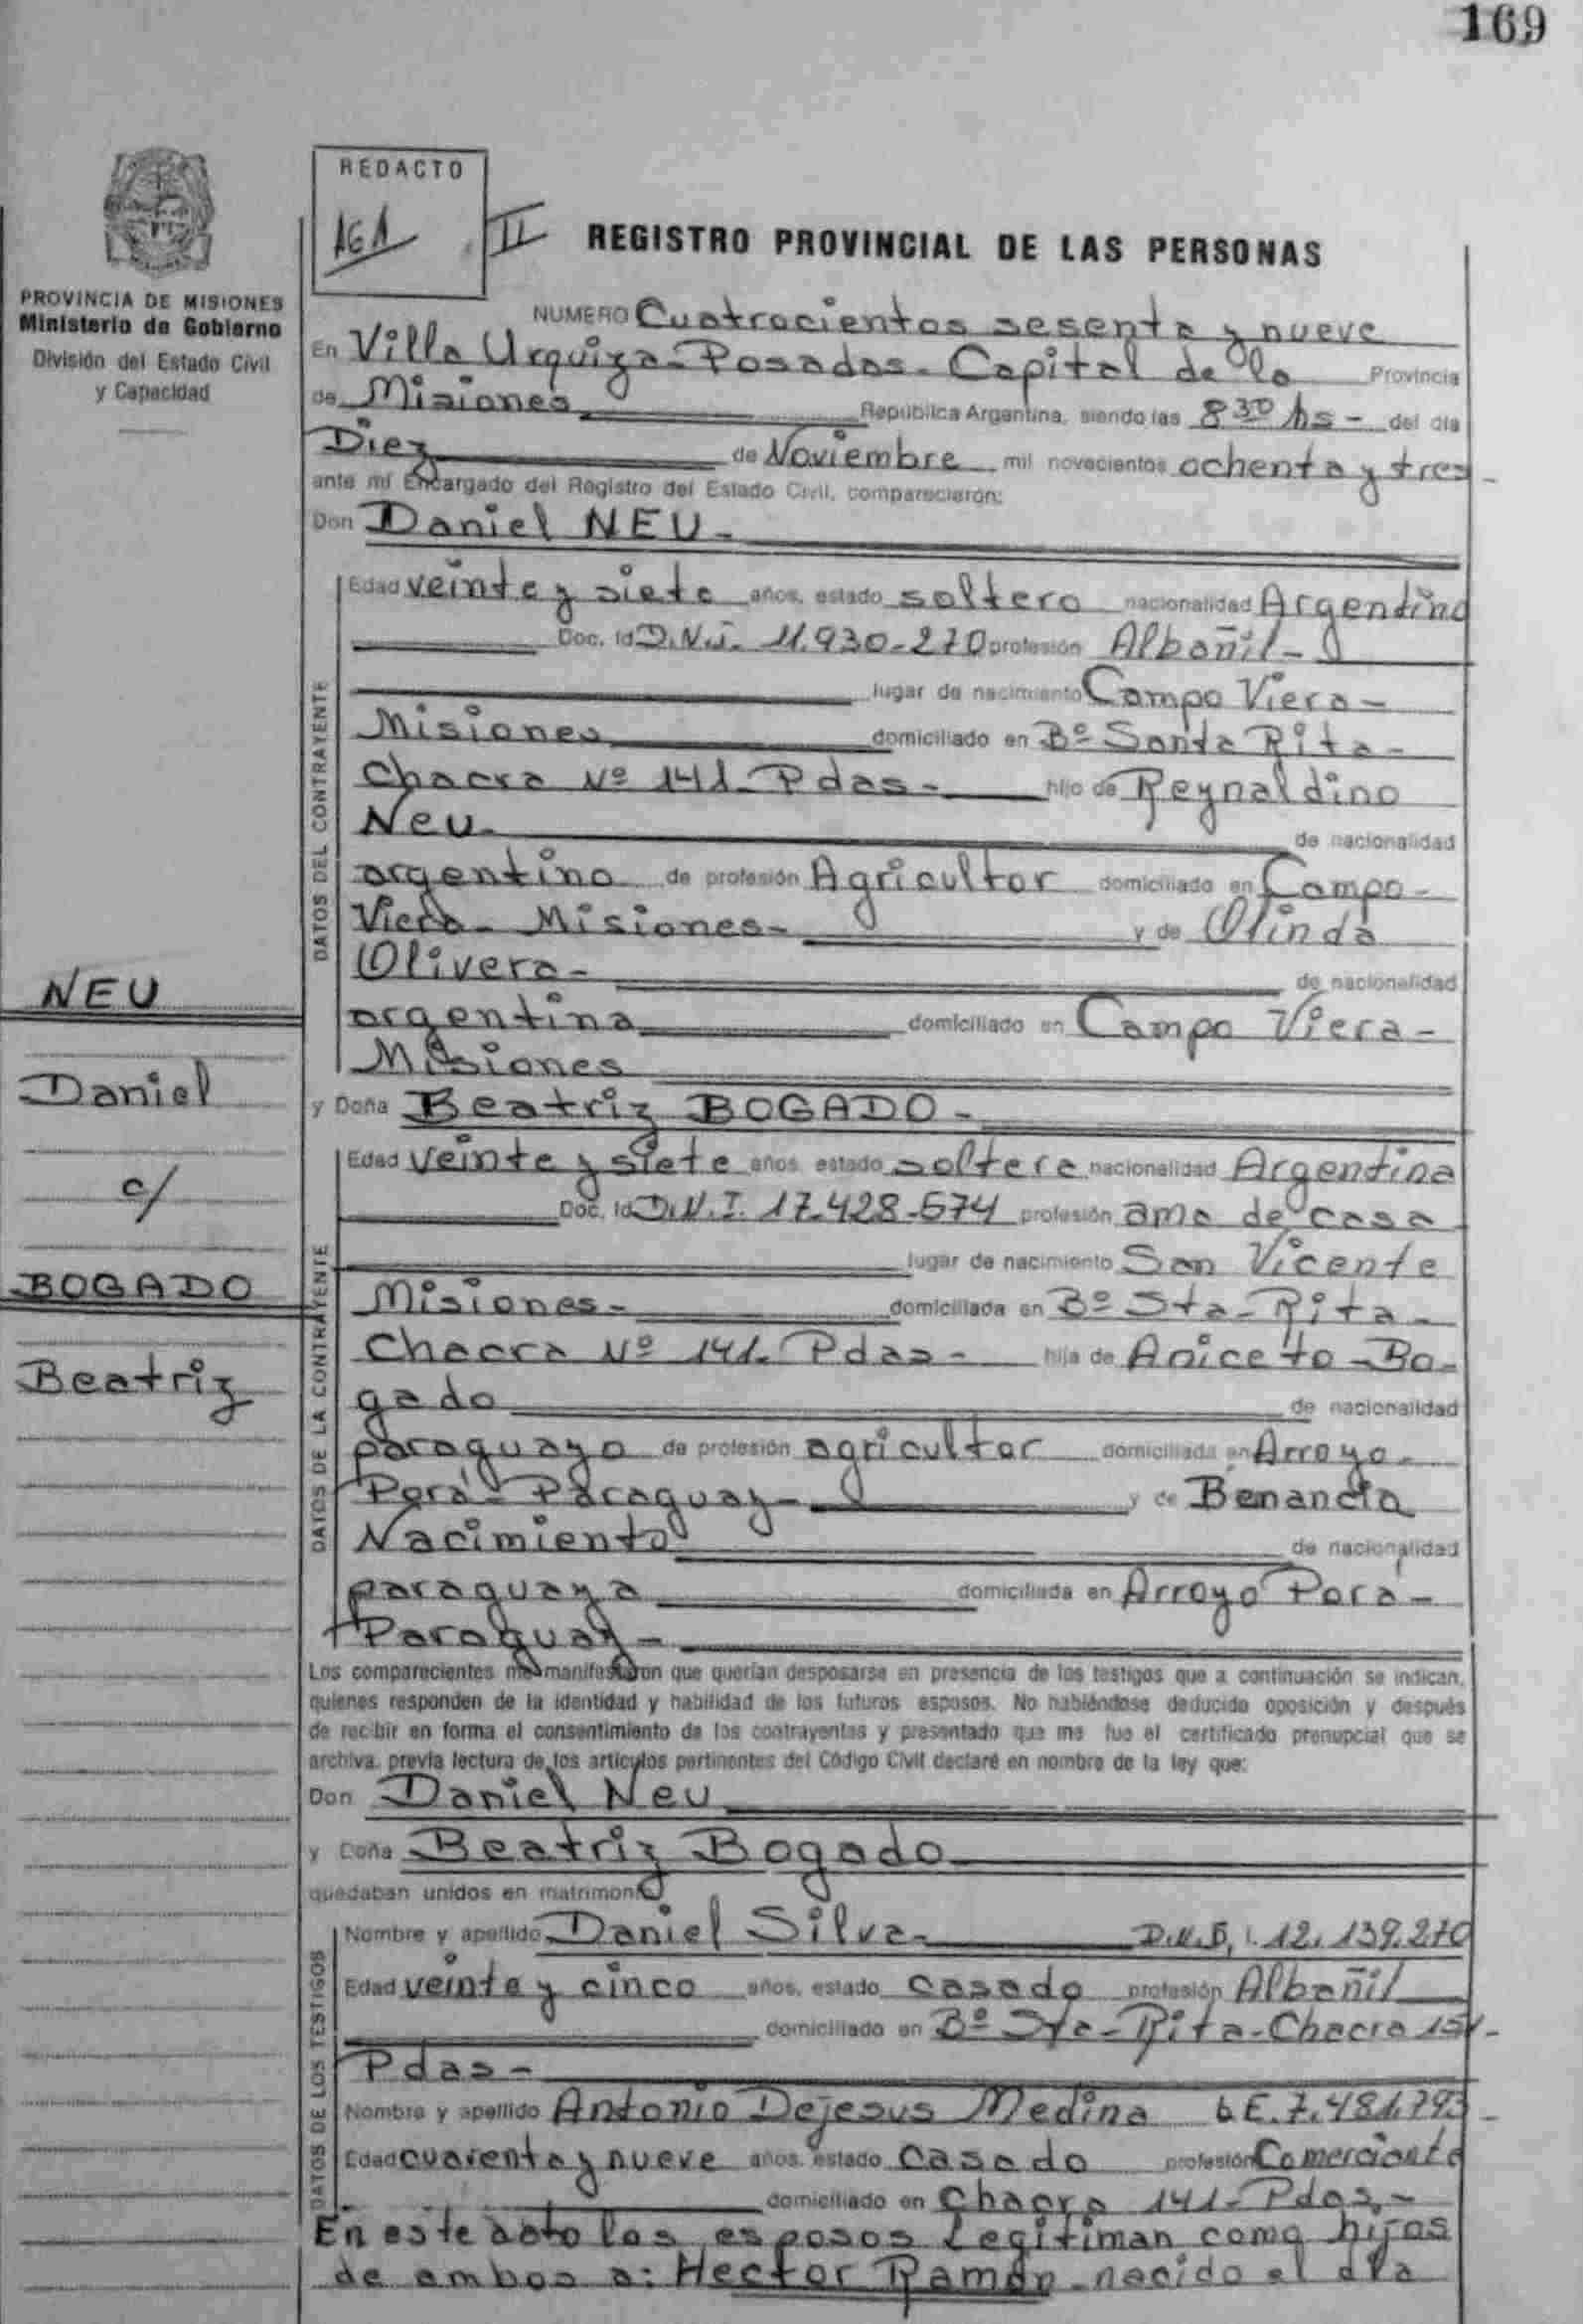 169
REDACTO
AGA II
REGISTRO PROVINCIAL DE LAS PERSONAS
PROVINCIA DE MISIONES
Ministerio de Gobierno
División del Estado Civil
y Capacidad
NUMERO Cuatrocientos sesenta y nueve
En Villa Urquiza - Posadas - Capital de la Provincia
de Misiones República Argentina, siendo las 8 30 hs - del día
Diez de Noviembre mil novecientos ochenta y tres -
ante mí Encargado del Registro del Estado Civil, comparecieron:
Don Daniel NEU -
DATOS DEL CONTRAYENTE
Edad veinte y siete años, estado soltero nacionalidad Argentino
Doc. Id D.N.I. 11.930-270 profesión Albañil -
lugar de nacimiento Campo Viera -
Misiones domiciliado en Bº Santa Rita -
Chacra Nº 141 - Pdas - hijo de Reynaldino
Neu - de nacionalidad
argentino de profesión Agricultor domiciliado en Campo -
Viera - Misiones - y de Olinda
Olivera - de nacionalidad
argentina domiciliado en Campo Viera -
Misiones
y Doña Beatriz BOGADO -
DATOS DE LA CONTRAYENTE
Edad veinte y siete años estado soltera nacionalidad Argentina
Doc. Id D.N.I. 17.428-574 profesión ama de casa
lugar de nacimiento San Vicente
Misiones - domiciliada en Bº Sta - Rita -
Chacra Nº 141 - Pdas - hija de Aniceto - Bo-
gado de nacionalidad
paraguayo de profesión agricultor domiciliada en Arroyo -
Porá - Paraguay - y de Benancia
Nacimiento de nacionalidad
paraguaya domiciliada en Arroyo Porá -
Paraguay -
Los comparecientes me manifestaron que querían desposarse en presencia de los testigos que a continuación se indican,
quienes responden de la identidad y habilidad de los futuros esposos. No habiéndose deducido oposición y después
de recibir en forma el consentimiento de los contrayentes y presentado que me fue el certificado prenupcial que se
archiva, previa lectura de los artículos pertinentes del Código Civil declaré en nombre de la ley que:
Don Daniel Neu
y Doña Beatriz Bogado
quedaban unidos en matrimonio
DATOS DE LOS TESTIGOS
Nombre y apellido Daniel Silva - 12.139.270
Edad veinte y cinco años, estado casado profesión Albañil
domiciliado en Bº Sta - Rita - Chacra 151 -
Pdas -
Nombre y apellido Antonio Dejesus Medina L.E. 7.481.793 -
Edad cuarenta y nueve años, estado casado profesión Comerciante
domiciliado en Chacra 141 - Pdas. -
En este acto los esposos Legitiman como hijos
de ambos a: Hector Ramón nacido el día
NEU
Daniel
c/
BOGADO
Beatriz